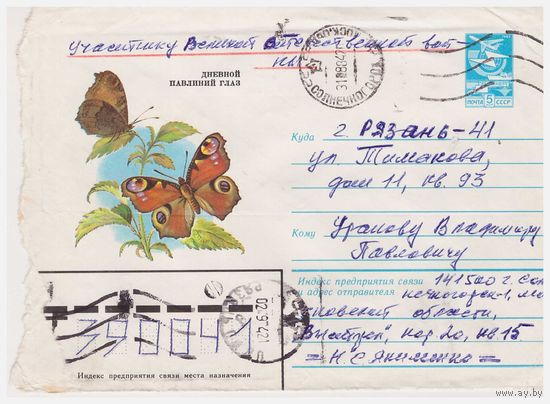 Участнику Великой Отечественной вой
ны
ДНЕВНОЙ
ПАВЛИНИЙ ГЛАЗ
ПОЧТА 5 СССР
Куда
г. Рязань-41
ул. Тимакова,
дом 11, кв. 93
Кому
Владимиру
Павловичу
Индекс предприятия связи
и адрес отправителя
141500 г. Сол
нечногорск-1, Мо
сковской области,
кв 15
390041
Индекс предприятия связи места назначения
www.ay.by